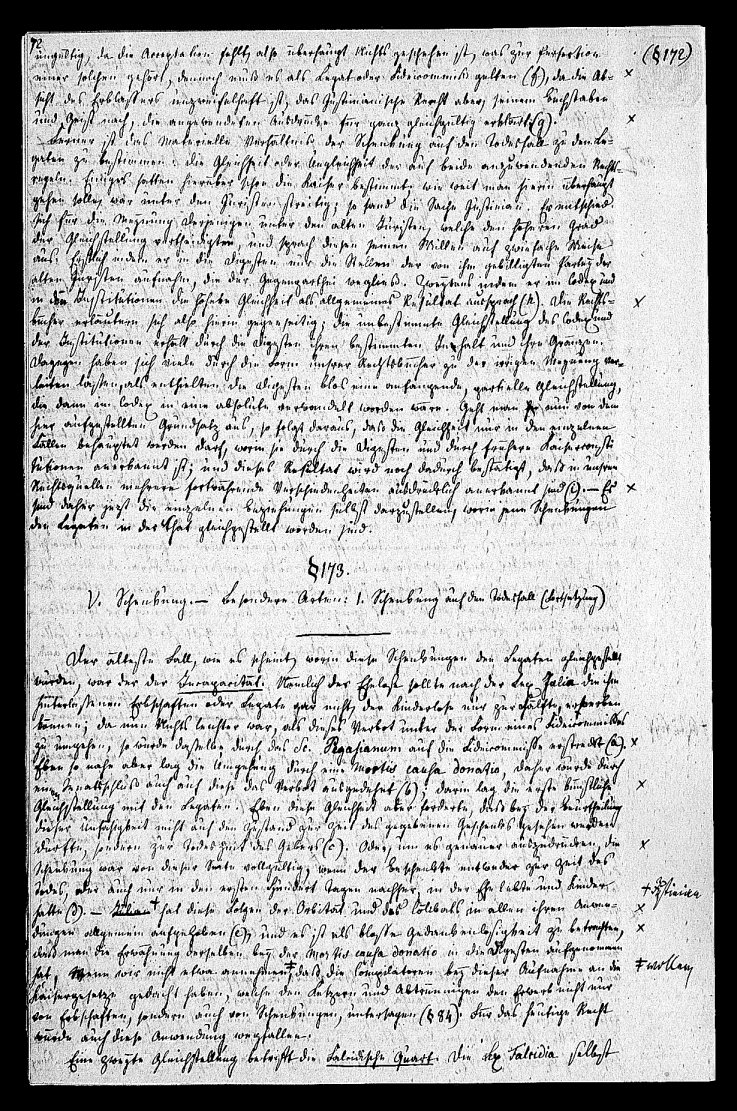 72
ungültig, da die Acceptation fehlt, also überhaupt Nichts geschehen ist, was zur Perfection
(§172)
einer solchen gehört, dennoch muß es als Legat oder Fideicommiß gelten (f), da die Ab-
sicht des Erblassers unzweifelhaft ist, das Justinianische Recht aber, seinem Buchstaben
und Geist nach, die angewendeten Ausdrücke für ganz gleichgültig erklärt (g).
Ferner ist das materielle Verhältniß der Schenkung auf den Todesfall zu den Le-
gaten zu bestimmen: die Gleichheit oder Ungleichheit der auf beide anzuwendenden Rechts-
regeln. Einiges hatten hierüber schon die Kaiser bestimmt; wie weit man hierin überhaupt
gehen solle, war unter den Juristen streitig; so fand die Sache Justinian. Er entschied
sich für die Meynung derjenigen unter den alten Juristen, welche den höheren Grad
der Gleichstellung vertheidigten, und sprach diesen seinen Willen auf zwiefache Weise
aus. Erstlich indem er in die Digesten nur die Stellen der von ihm gebilligten Partey der
alten Juristen aufnahm, die der Gegenparthei wegließ. Zweytens indem er im Codex und
in den Institutionen die höhere Gleichheit als allgemeines Resultat aussprach (h). Die Rechts-
bücher erläutern sich also hierin gegenseitig; die unbestimmte Gleichstellung des Codex und
der Institutionen erhält durch die Digesten ihren bestimmten Inhalt und ihre Gränzen.
Dagegen haben sich viele durch die Form unsrer Rechtsbücher zu der irrigen Meynung ver-
leiten lassen, als enthielten die Digesten blos eine anfangende, partielle Gleichstellung,
die dann im Codex in eine absolute verwandelt worden wäre. Geht man nun von dem
hier aufgestellten Grundsatz aus, so folgt daraus, daß die Gleichheit nur in den einzelnen
Fällen behauptet werden darf, worin sie durch die Digesten und durch frühere Kaiserconsti-
tutionen anerkannt ist; und dieses Resultat wird noch dadurch bestätigt, daß in unsren
Rechtsquellen mehrere fortwährende Verschiedenheiten ausdrücklich anerkannt sind (i). — Es
sind daher jetzt die einzelnen Beziehungen selbst darzustellen, worin jene Schenkungen
den Legaten in der That gleichgestellt worden sind.
§173.
V. Schenkung. — Besondere Arten: 1. Schenkung auf den Todesfall (Fortsetzung)
Der älteste Fall, wie es scheint, worin diese Schenkungen den Legaten gleichgestellt
wurden, war der der Incapacität. Nämlich der Ehelose sollte nach der Lex Julia die ihm
hinterlassenen Erbschaften oder Legate gar nicht, der Kinderlose nur zur Hälfte, erwerben
können; da nun Nichts leichter war, als dieses Verbot unter der Form eines Fideicommisses
zu umgehen, so wurde dasselbe durch das Sc. Pegasianum auf die Fideicommisse erstreckt (a).
Eben so nahe aber lag die Umgehung durch eine mortis causa donatio, daher wurde durch
einen Senatsschluß auch auf diese das Verbot ausgedehnt (b); darin lag die erste künstliche
Gleichstellung mit den Legaten. Eben diese Gleichheit aber forderte, daß bey der Beurtheilung
dieser Unfähigkeit nicht auf den Zustand zur Zeit des gegebenen Geschenks gesehen werden
durfte, sondern zur Todeszeit des Gebers (c). Oder, um es genauer auszudrücken, die
Schenkung war von dieser Seite vollgültig, wenn der Beschenkte entweder zur Zeit des
Todes, oder auch nur in den ersten hundert Tagen nachher, in der Ehe lebte und Kinder
+ Justinian
hatte (d). — + hat diese Folgen der Orbität und des Cölibats in allen ihren Anwen-
dungen allgemein aufgehoben (e), und es ist als bloße Gedankenlosigkeit zu betrachten,
daß man die Erwähnung derselben bey der mortis causa donatio in die Digesten aufgenommen
hat, wenn wir nicht etwa annehmen ‡, daß die Compilatoren bey dieser Aufnahme an die
‡ wollen
Kaisergesetze gedacht haben, welche den Ketzern und Abtrünnigen den Erwerb nicht nur
von Erbschaften, sondern auch von Schenkungen, untersagen (§84). Für das heutige Recht
würde auch diese Anwendung wegfallen.
Eine zweyte Gleichstellung betrifft die Falcidische Quart. Die Lex Falcidia selbst